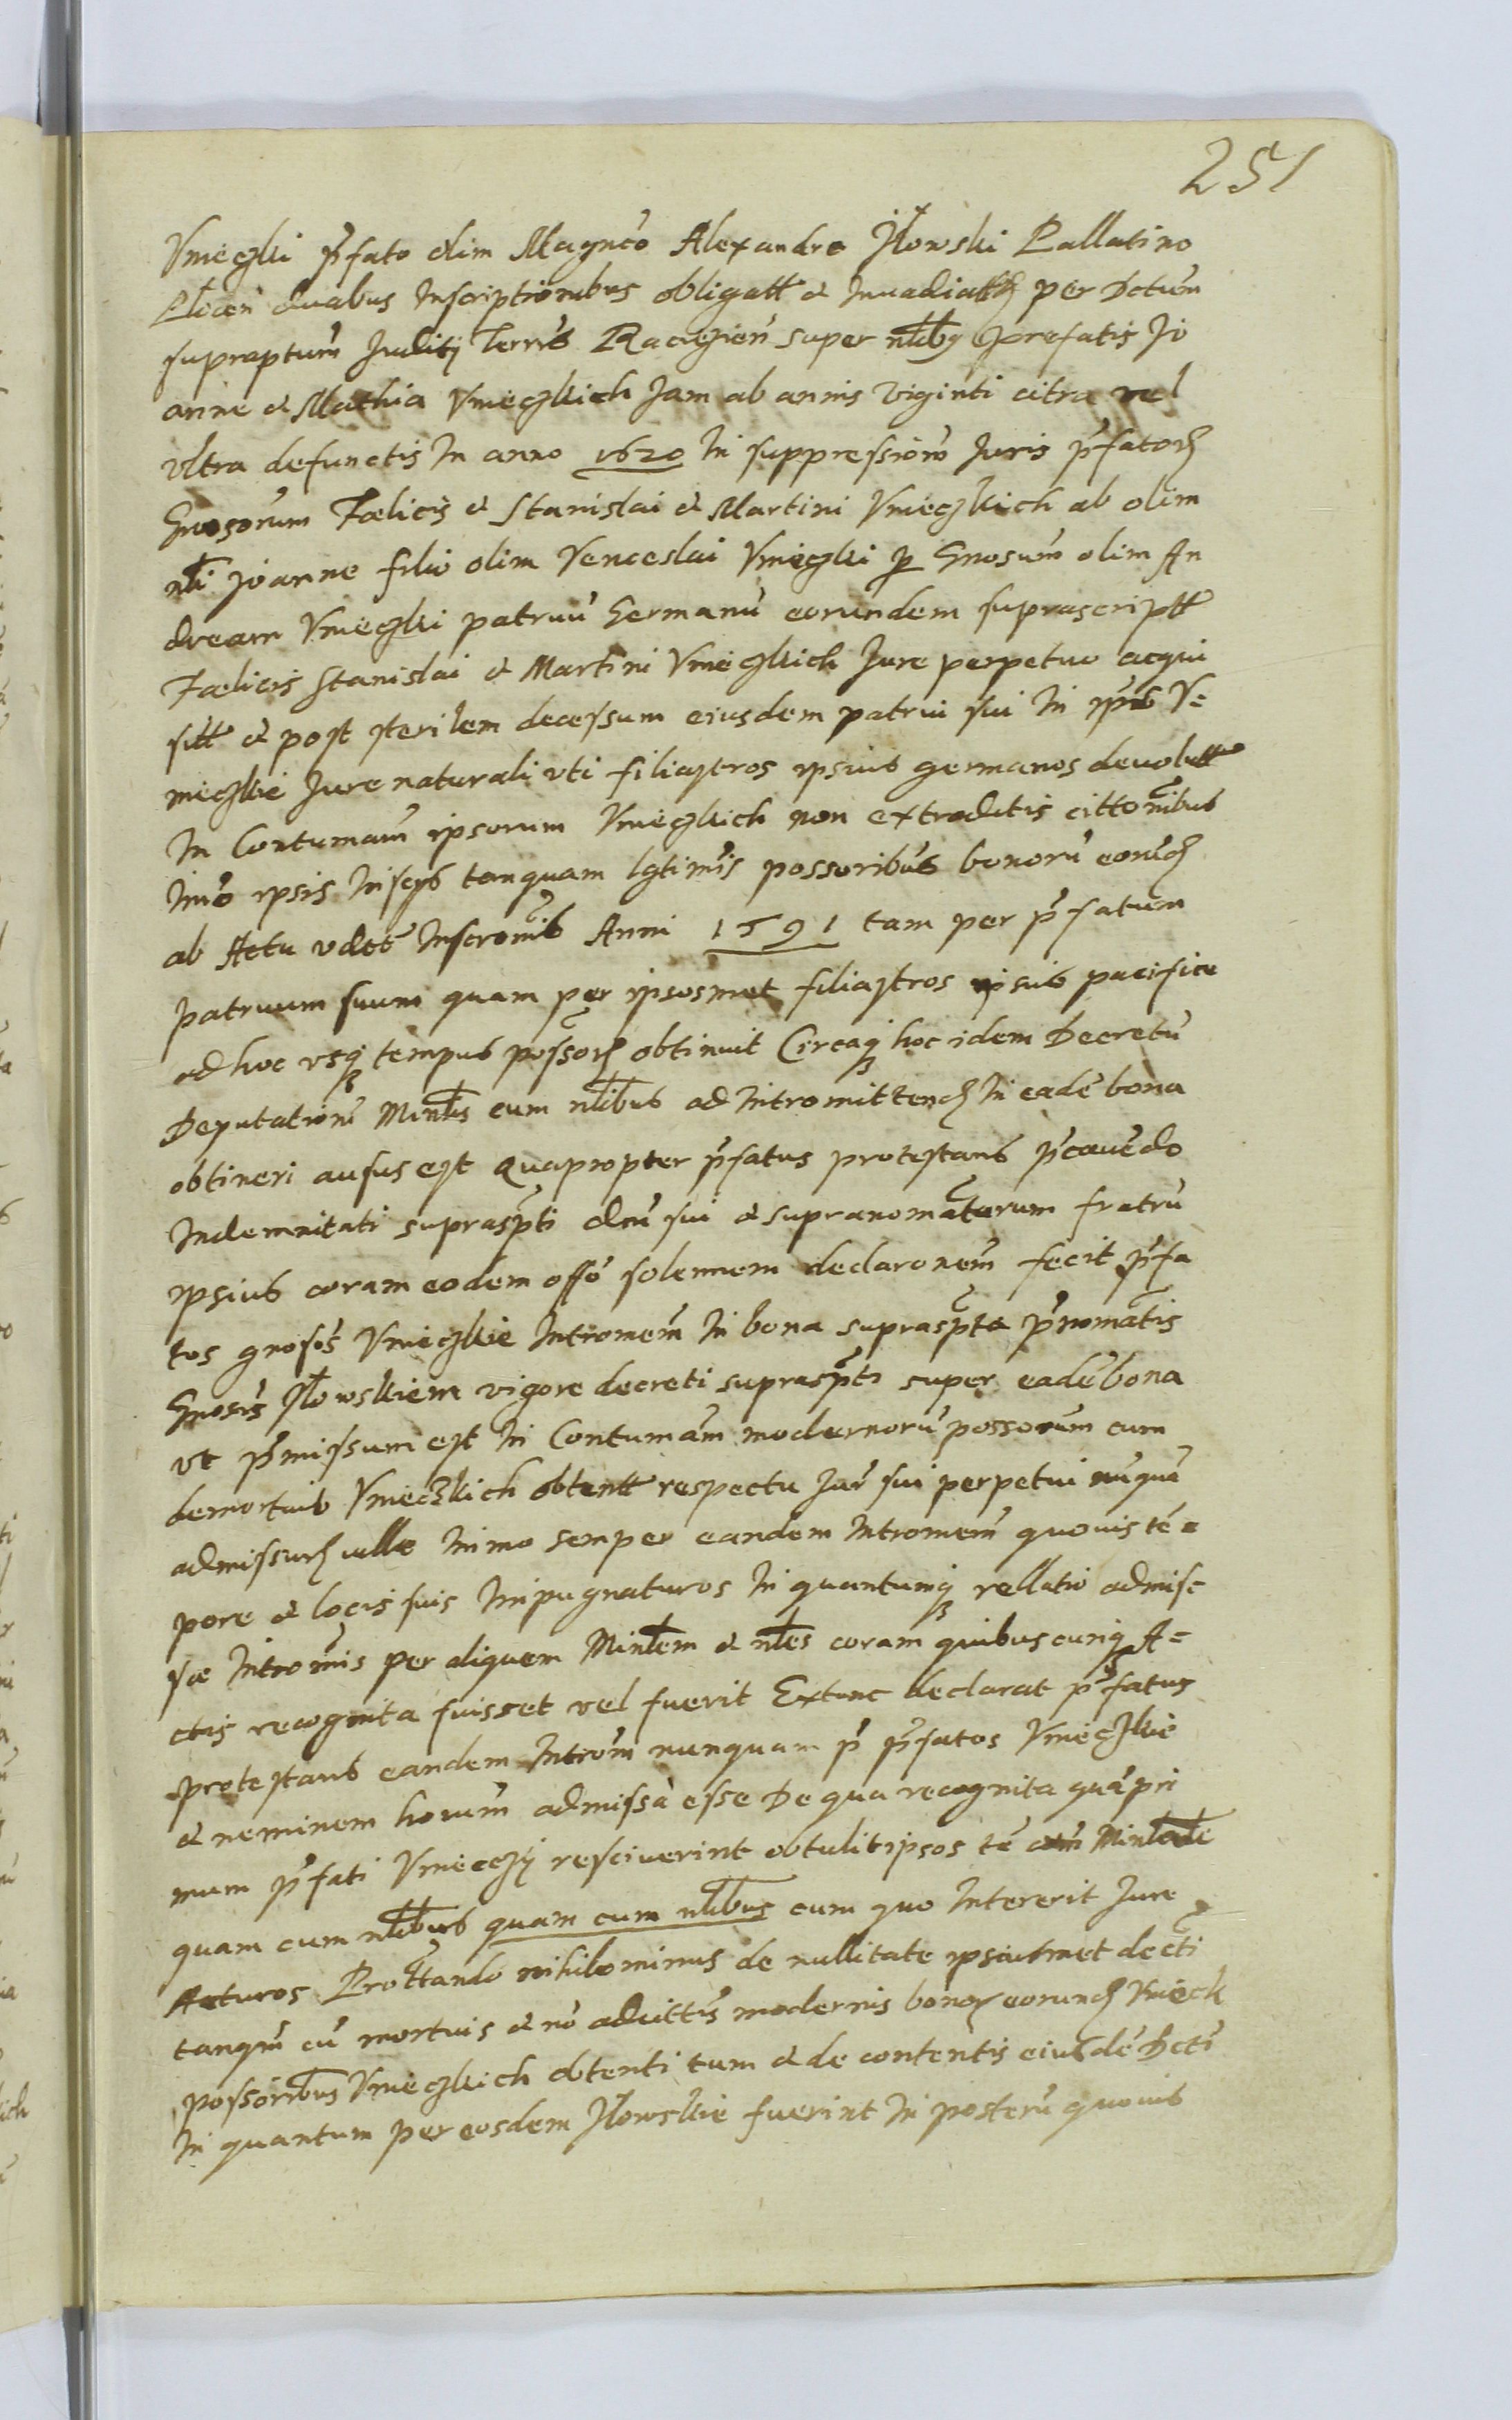 251
Vmięczki p̃fato olim Magnco Alexandro Jłowski Pallatino
Plocen duabus Inscriptionibus obligatt et Inuadiattȝ per Dctum
supraptum Judicij Terris Raciązien super nlibȝ prefatis Jo
anne et Mathia Vmięczkich Jam ab annis viginti citra vel
vltra defunctis In anno 1620 In suppressionem Juris p̃fatorȝ
Gnosorum Fœlicis et Stanislai et Martini Vmięczkich ab olim
nli Joanne filio olim Venceslai Vmięczki per Gnosum olim An
dream Vmięczki patruũ Germanũ eorundem suprascriptt
Fœlicis Stanislai et Martini Vmięczkich Jure perpetuo acqui
sitt et post sterilem decessum eiusdem patrui sui In ipsos V=
mięczkie Jure naturali vti filiastros ipsius germanos deuolutt
In Contumam ipsorum Vmięczkich non extraditis cittonibus
Imo ipsis Insciis tanquam lgtimis possoribus bonorũ eorũdȝ
ab Actu vdtt Inscronis Anni 1591 tam per p̃fatum
patruum suum quam per ipsosmet filiastros ipsius pacifice
ad hoc vsqȝ tempus possorȝ obtinuit Circaqȝ hoc idem Decretũ
Deputationi Minlis cum nlibus ad Intromittendȝ In eadẽ bona
obtineri ausus est Quapropter p̃fatus protestans p̃cauẽdo
Indemnitati suprasp̃ti dcũ sui et supranomaturum fratrũ
ipsius coram eodem offo solennem declaronem fecit p̃fa
tos gnosos Vmięczkie Intromem In bona suprasp̃ta p̃nomatis
Gnosis Jłowskiem vigore decreti suprasp̃ti super eadẽ bona
vt p̃missum est In Contumam modernorũ possorum cum
demortuis Vmięczkich obtentt respectu Jur̃ sui perpetui nũquã
admissurȝ velle Immo semper eandem Intromem quouis tẽ=
pore et locis suis Impugnaturos In quantumqȝ rellatio admis=
sæ Intromis per aliquem Minlem et nles coram quibuscunqȝ A=
ctis recognita fuisset vel fuerit Extunc declarat p̃fatus
protestans eandem Introm nunquam p̃ p̃fatos Vmięczkie
et neminem horum admissã esse De qua recognita quãpri
mum p̃fati Vmięczcy resciuerint obtulit ipsos tẽ cum Minlale
quam cum nlibus quam cum nlibus cum quo Intererit Jure
Acturos Prottando nihilominus de nullitate ipsiusmet decti
tanqm̃ cũ mortuis et nõ adcittis modernis bonorȝ eorundȝ Vmięck
possoribus Vmięczkich obtenti tum et de contentis eiusdẽ Dcti
In quantum per eosdem Jłowskie fuerint In posterũ quouis